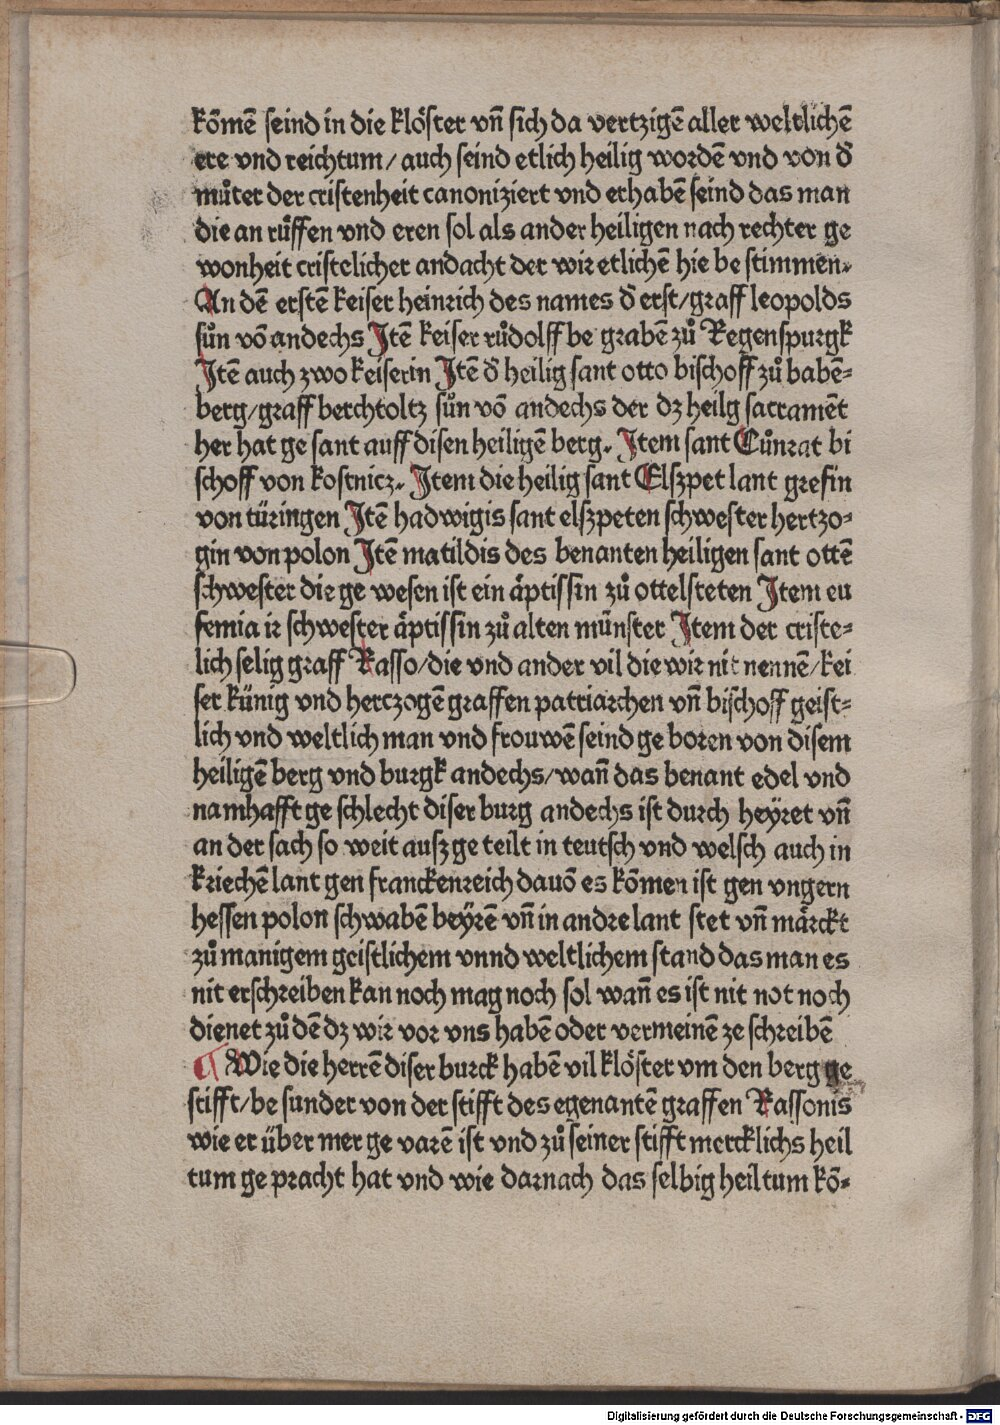 kōmē seind in die klöster vn̄ sich da vertzigē aller weltlichē
ere vnd reichtum/ auch seind etlich heilig wordē vnd von d̄
můter der cristenheit canoniziert vnd erhabē seind das man
die an růffen vnd eren sol als ander heiligen nach rechter ge
wonheit cristelicher andacht der wir etlichē hie be stimmen.
An dē erstē keiser heinrich des names d̄ erst/ graff leopolds
sůn vō andechs Jtē keiser růdolff be grabē zů Regenspurgk
Jtē auch zwo keiserin Jtē d̄ heilig sant otto bischoff zů babē-
berg/ graff berchtoltz sůn vō andechs der dz heilg sacramēt
her hat ge sant auff disen heiligē berg. Jtem sant Cůnrat bi
schoff von kostnicz. Jtem die heilig sant Elszpet lant grefin
von türingen Jtē hadwigis sant elszpeten schwester hertzo-
gin von polon Jtē matildis des benanten heiligen sant ottē
schwester die ge wesen ist ein äptissin zů ottelsteten Jtem eu
femia ir schwester äptissin zů alten münster Jtem der criste-
lich selig graff Rasso/ die vnd ander vil die wir nit nennē/ kei
ser künig vnd herczogē graffen patriarchen vn̄ bischoff geist-
lich vnd weltlich man vnd frouwē seind ge boren von disem
heiligē berg vnd burgk andechs/ wan̄ das benant edel vnd
namhafft ge schlecht diser burg andechs ist durch heyret vn̄
an der sach so weit ausz ge teilt in teutsch vnd welsch auch in
kriechē lant gen franckenreich dauō es kōmen ist gen vngern
hessen polon schwabē beyrē vn̄ in andre lant stet vn̄ märckt
zů manigem geistlichem vnnd weltlichem stand das man es
nit erschreiben kan noch mag noch sol wan̄ es ist nit not noch
dienet zů dē dz wir vor vns habē oder vermeinē ze schreiben̄
¶ Wie die herrē diser burck haben̄ vil klöster vm den berg ge
stifft/ be sunder von der stifft des egenantē graffen Rassonis
wie er über mer ge varē ist vnd zů seiner stifft mercklichs heil
tum ge pracht hat vnd wie darnach das selbig heiltum kō-
Digitalisierung gefördert durch die Deutsche Forschungsgemeinschaft - DFG